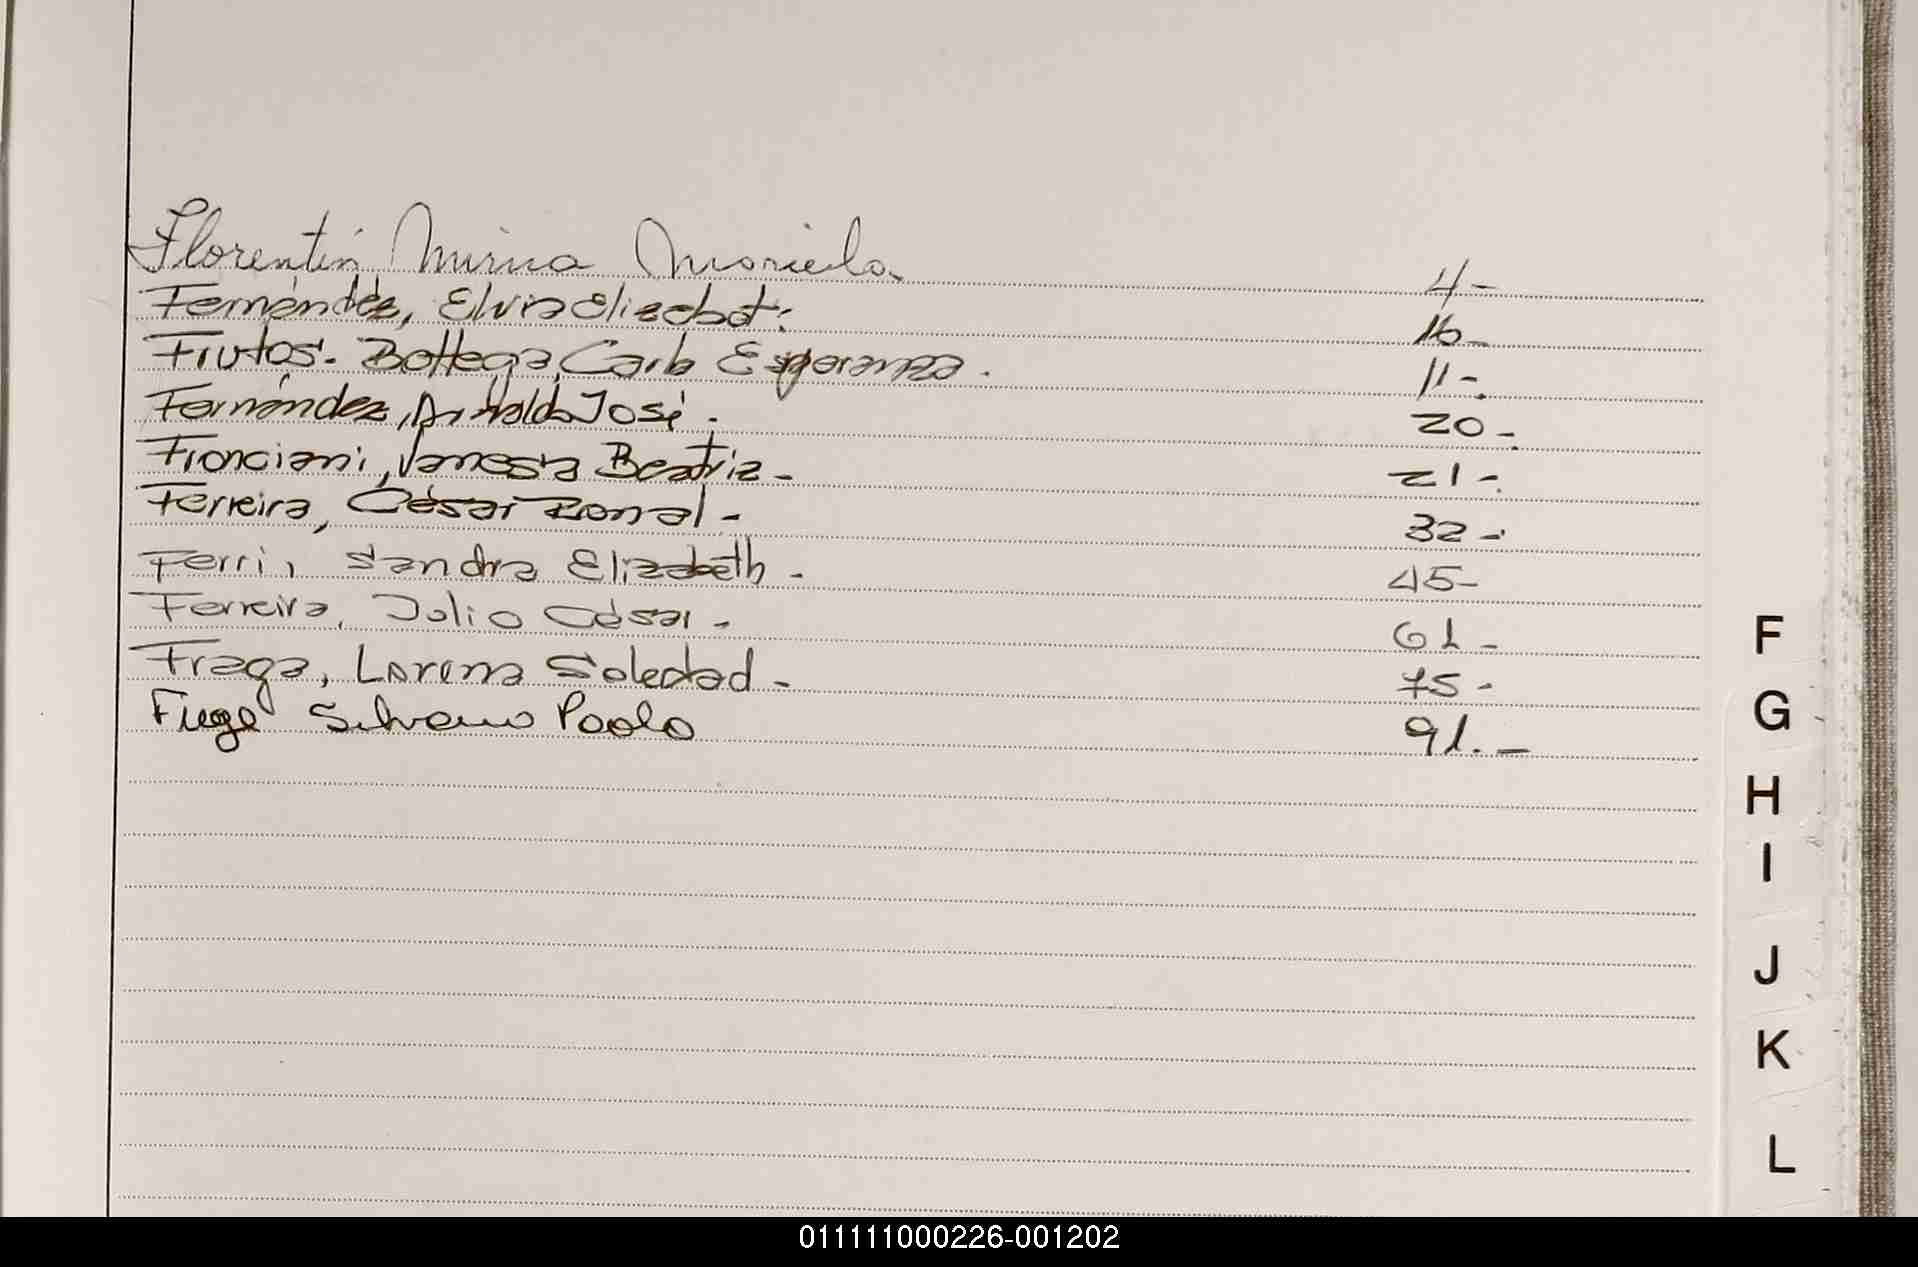 Florentín Mirna Mariela 4-
Fernández, Elvis Elizabet. 16-
Frutos. Bottega, Carla Esperanza. 11-
Fernández, Arnaldo José. 20-
Franciani, Vanessa Beatriz- 21-
Ferreira, César Ronal- 32-
Ferri, Sandra Elizabeth- 45-
Ferreira, Julio César- 61-
Fraga, Lorena Soledad- 75-
Silvano Paolo 91.-
F
G
H
I
J
K
L
011111000226-001202